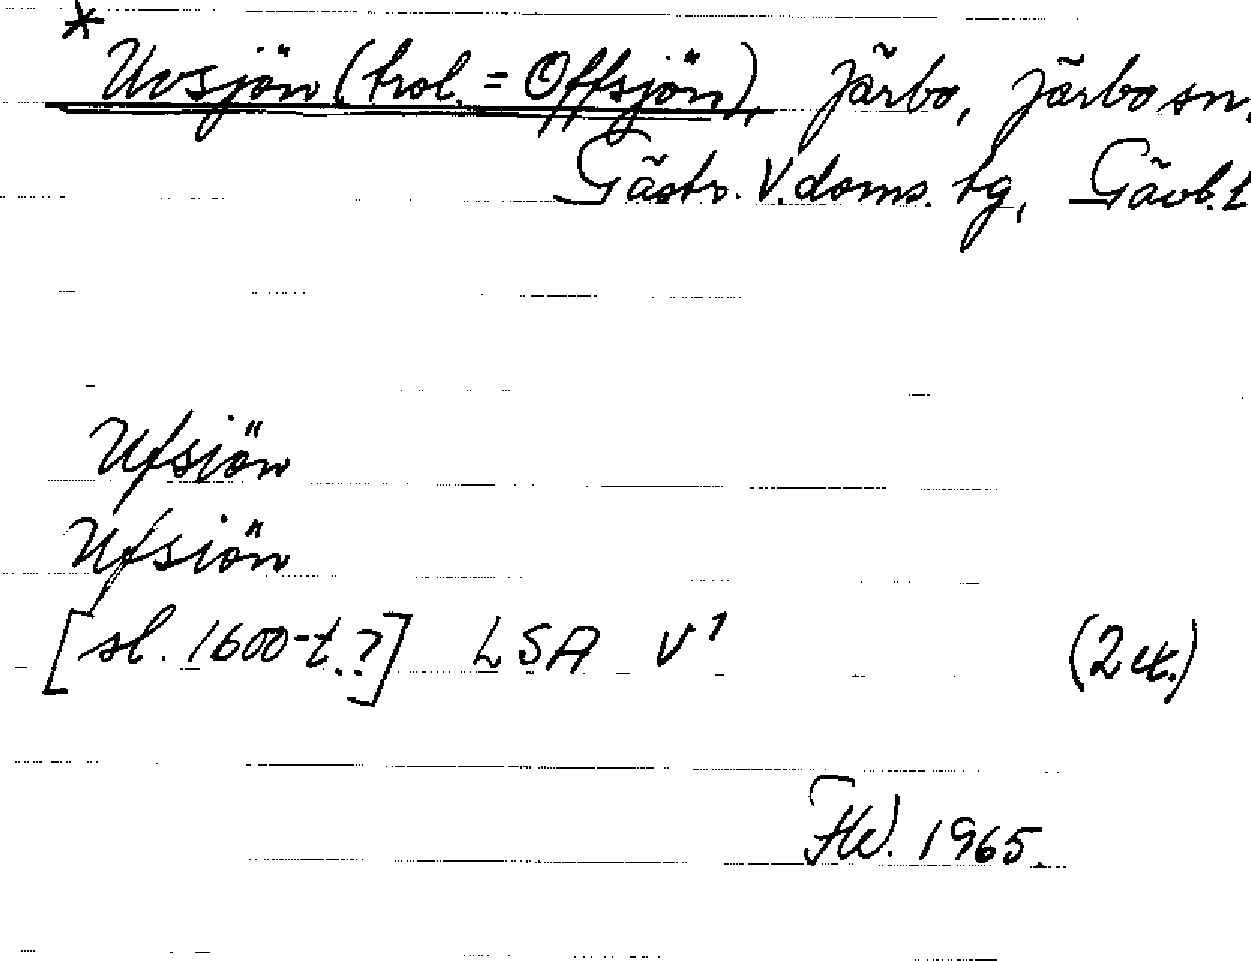 *
Uvsjön (trol. = Offsjön), Järbo, Järbo sn,
Gästr. V. doms. tg, Gävb. l
Ufsiön
Ufsiön
[sl. 1600-t.?] LSA V¹ (2 ex.)
1965.